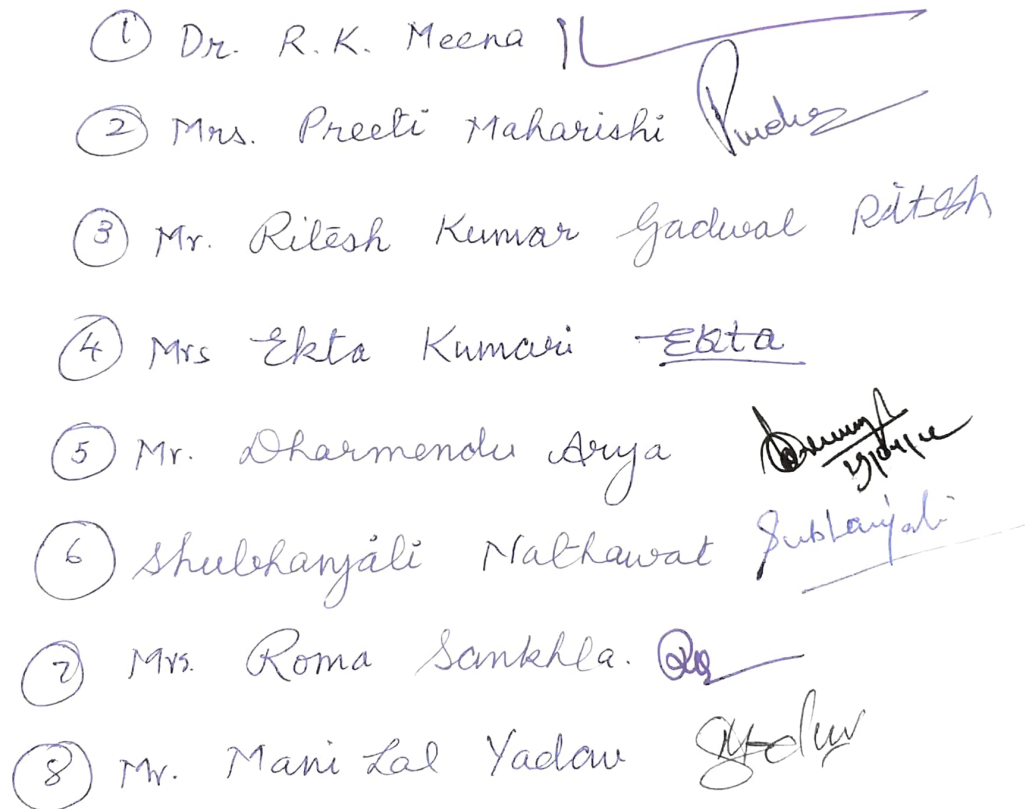 1 Dr. R. K. Meena
2 Mrs. Preeti Maharishi
3 Mr. Ritesh Kumar Gadwal Ritesh
4 Mrs Ekta Kumari Ekta
5 Mr. Dharmendu Arya
6 Shubhanjali Nathawat Subhanjali
7 Mrs. Roma Sankhla.
8 Mr. Mani Lal Yadav